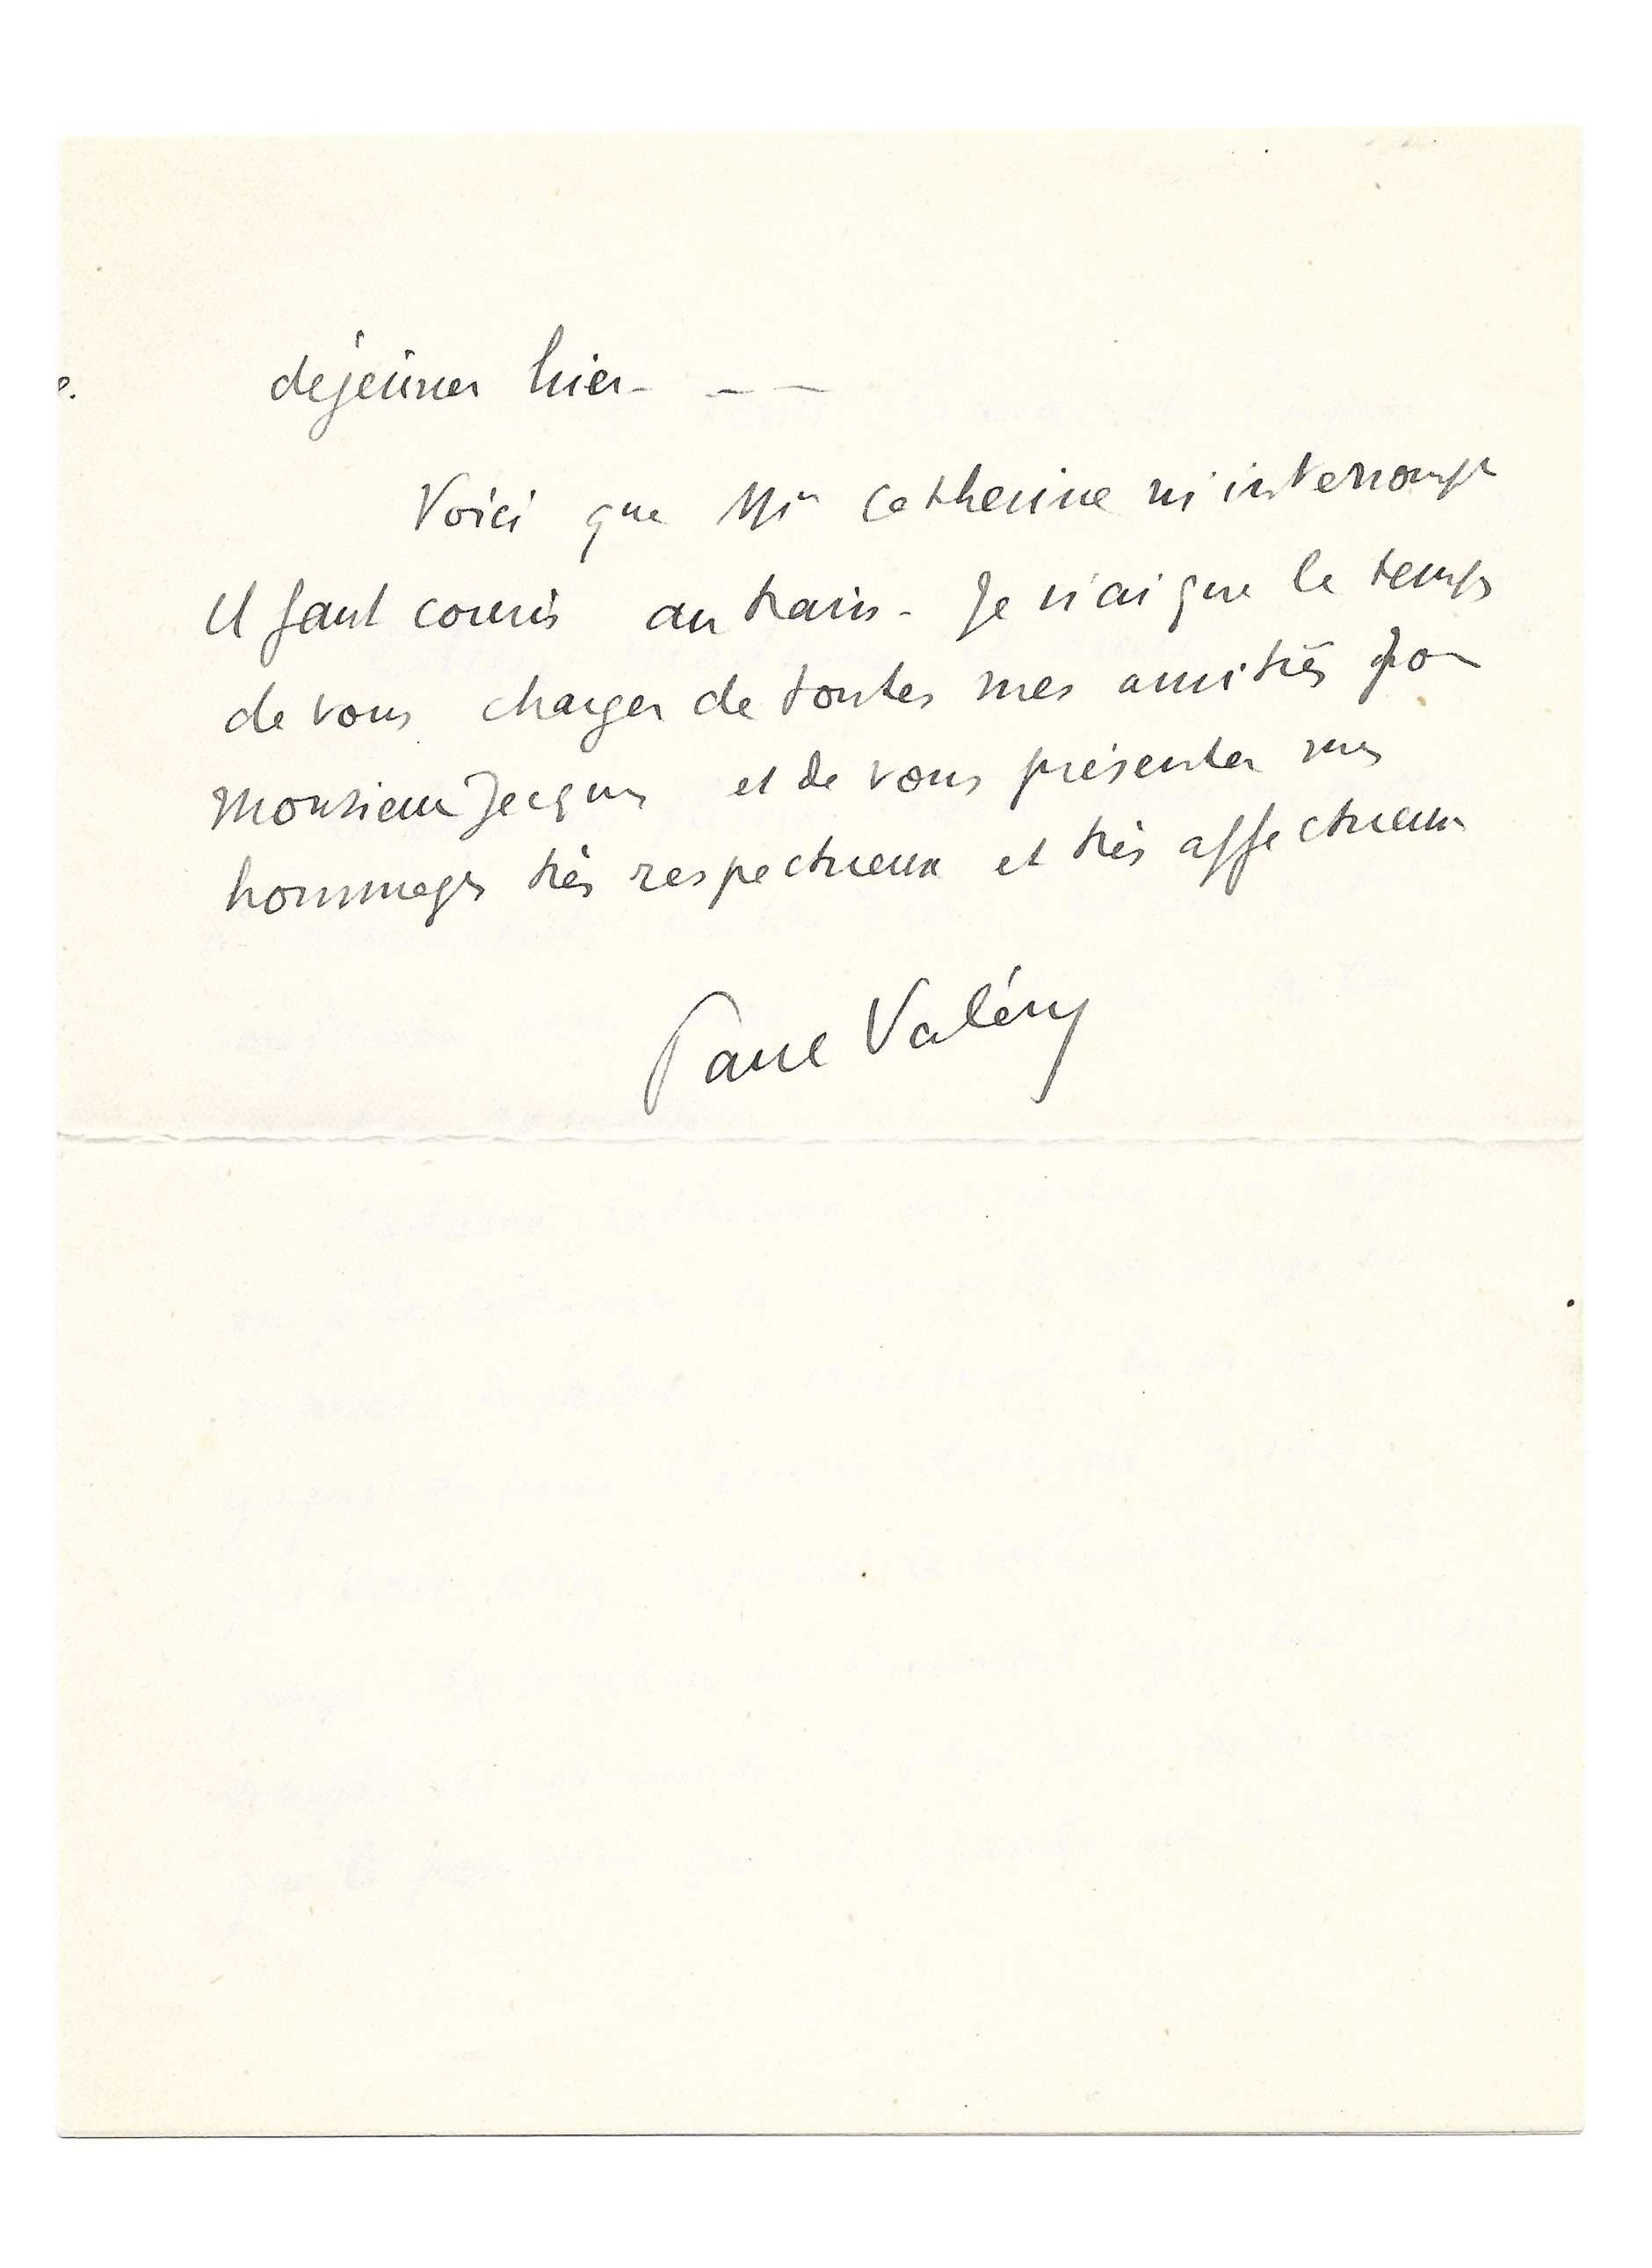 déjeuner hier - — —
Voici que Mlle Catherine m'interrompt
Il faut courir au train - Je n'ai que le temps
de vous charger de toutes mes amitiés pour
Monsieur Jacques et de vous présenter mes
hommages très respectueux et très affectueux
Paul Valéry